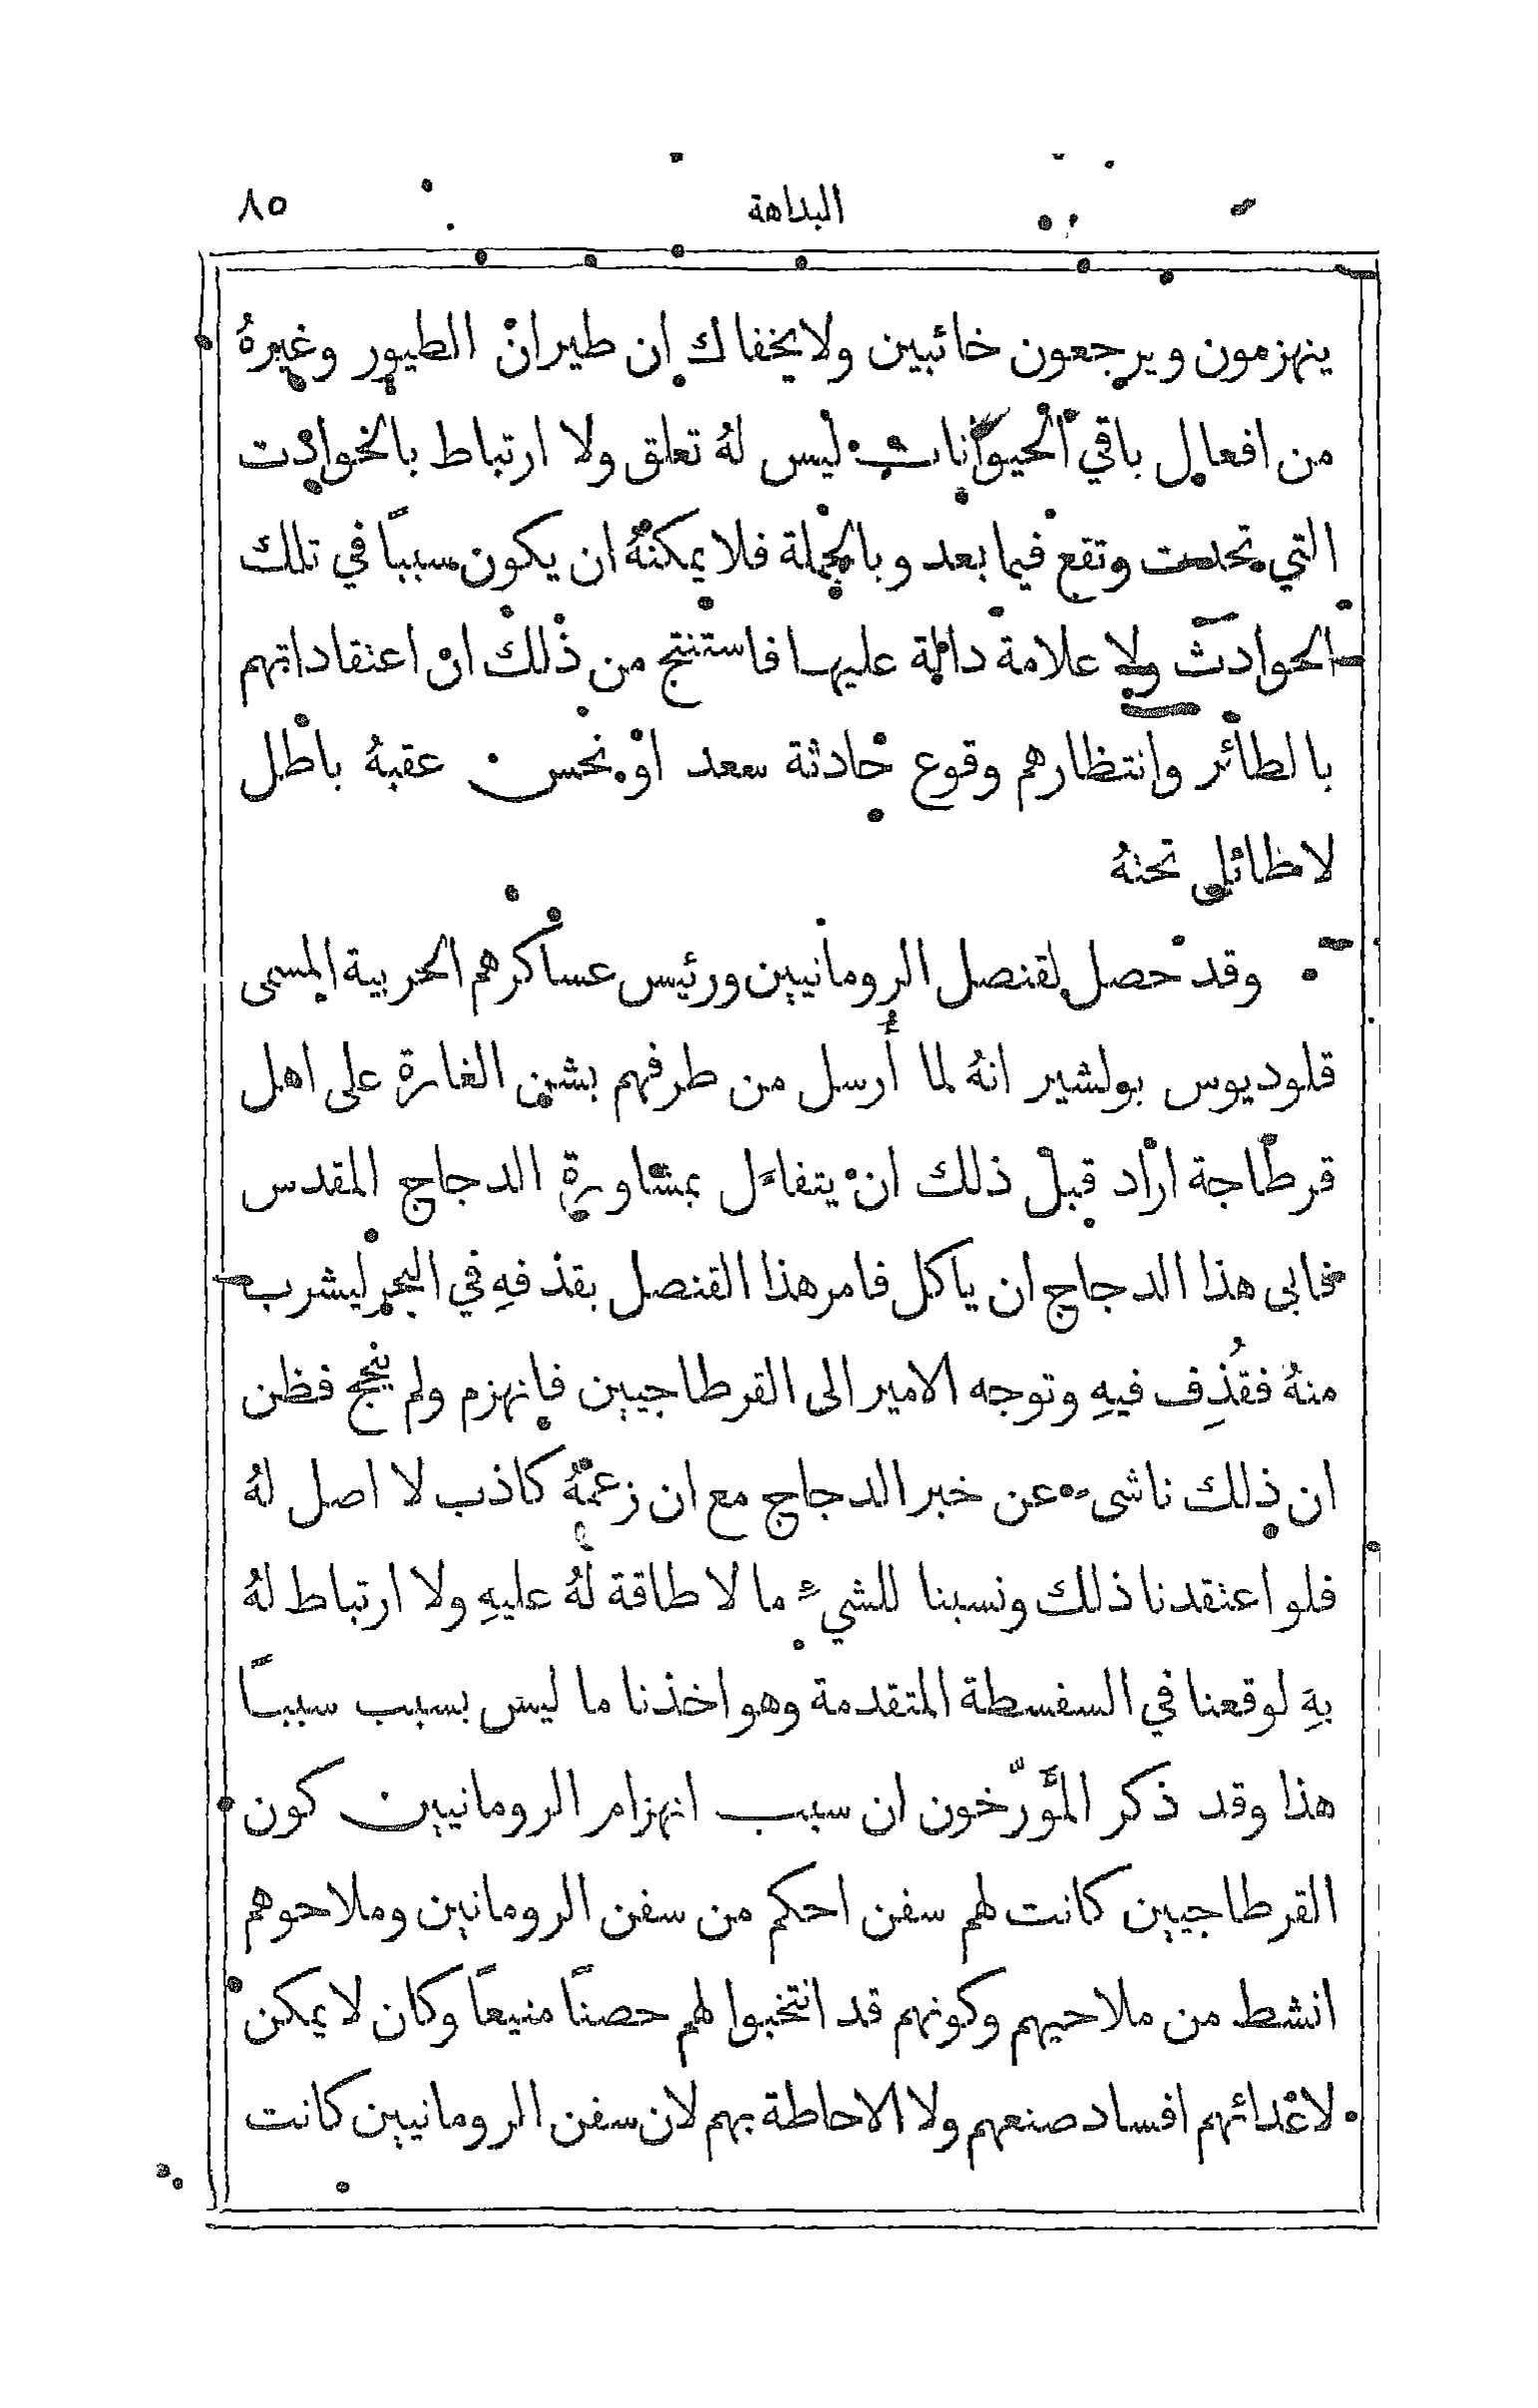 البداهة ٨٥
ينهزمون ويرجعون خائبين ولا يخفاك ان طيران الطيور وغيرهُ
من افعال باقي الحيوانات ليس لهُ تعلق ولا ارتباط بالحوادث
التي تحدث وتقع فيما بعد وبالجملة فلا يمكنهُ ان يكون سبباً في تلك
الحوادث ولا علامة دالة عليها فاستنتج من ذلك ان اعتقاداتهم
بالطائر وانتظارهم وقوع حادثة سعد او نحس عقبهُ باطل
لا طائل تحتهُ
وقد حصل لقنصل الرومانيين ورئيس عساكرهم الحربية المسمى
قلوديوس بولشير انهُ لما أُرسل من طرفهم بشن الغارة على اهل
قرطاجة اراد قبل ذلك ان يتفاءل بمشاورة الدجاج المقدس
فابى هذا الدجاج ان ياكل فامر هذا القنصل بقذفهِ في البحر ليشرب
منهُ فقُذِف فيهِ وتوجه الامير الى القرطاجيين فانهزم ولم ينجح فظن
ان ذلك ناشىء عن خبر الدجاج مع ان زعمهُ كاذب لا اصل لهُ
فلو اعتقدنا ذلك ونسبنا للشيء ما لا طاقة لهُ عليهِ ولا ارتباط لهُ
بهِ لوقعنا في السفسطة المتقدمة وهو اخذنا ما ليس بسبب سبباً
هذا وقد ذكر المؤَرّخون ان سبب انهزام الرومانيين كون
القرطاجيين كانت لهم سفن احكم من سفن الرومانيين وملاحوهم
انشط من ملاحيهم وكونهم قد انتخبوا لهم حصناً منيعاً وكان لا يمكن
لاعدائهم افساد صنعهم ولا الاحاطة بهم لان سفن الرومانيين كانت